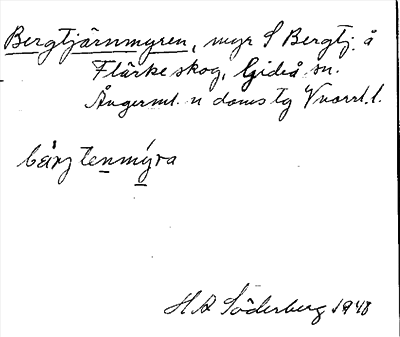 Bergtjärnmyren, myr S Bergtj. å
Flärke skog, Gideå sn.
Ångerml. n doms tg Vnorrl. l.
bärjtenmýra
H A Söderberg 1948